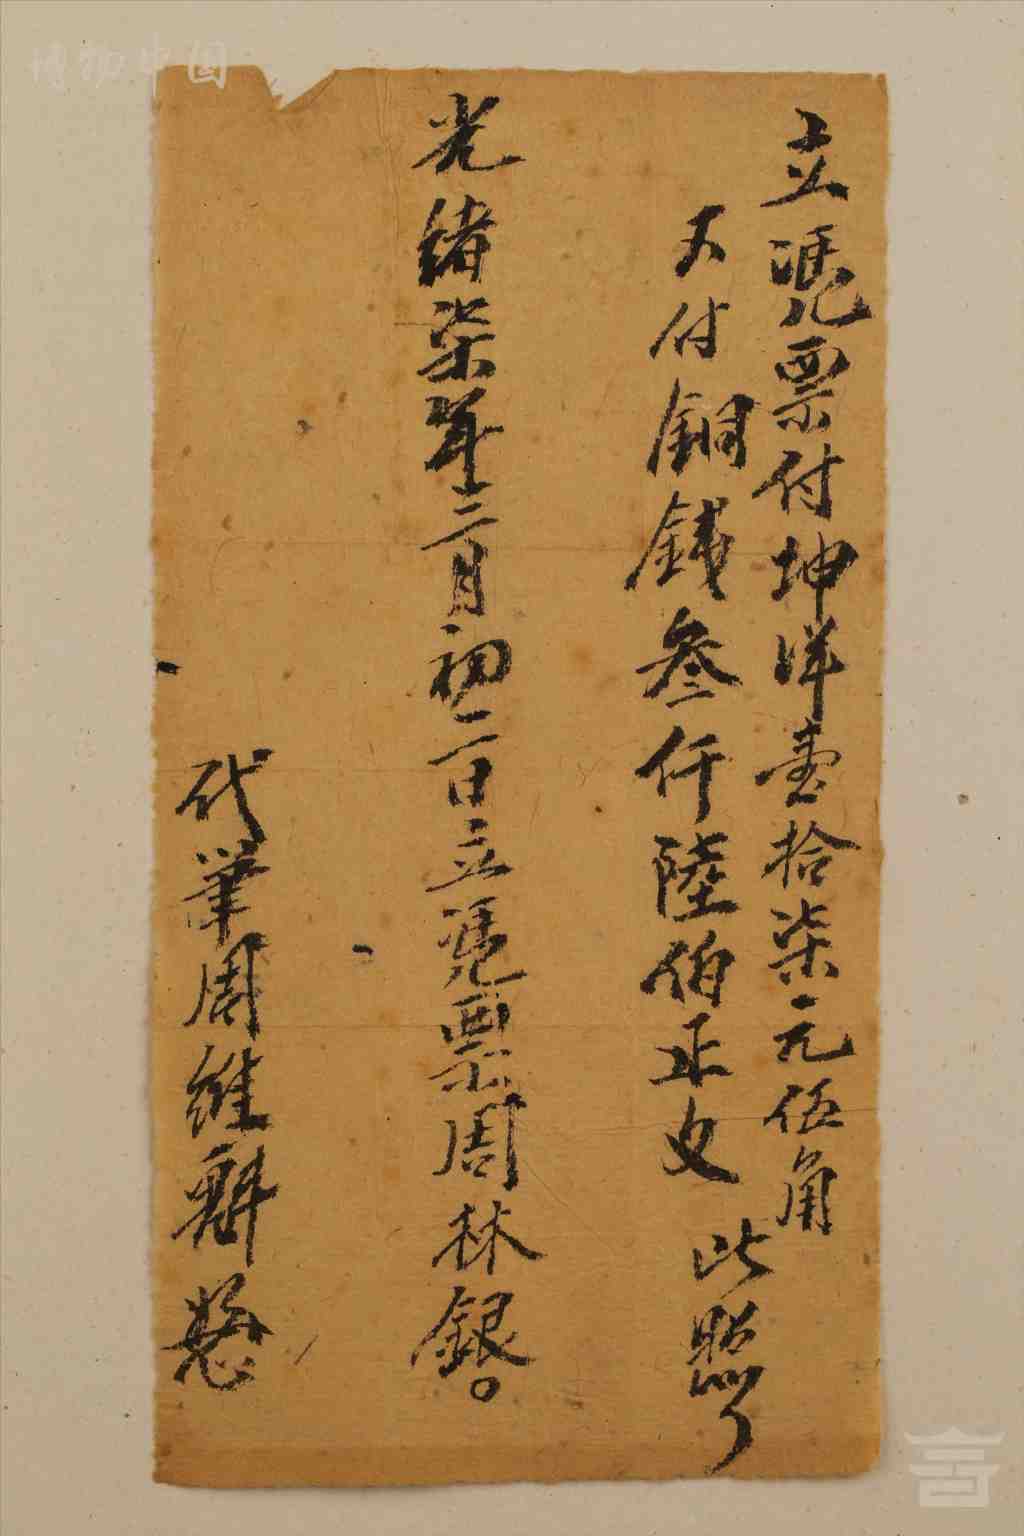 立凴票付坤洋壹拾柒元伍角
又付銅錢叁仟陸伯正文 此照
光緒柒年二月初二日立凴票周林銀
代筆周維
博物中国